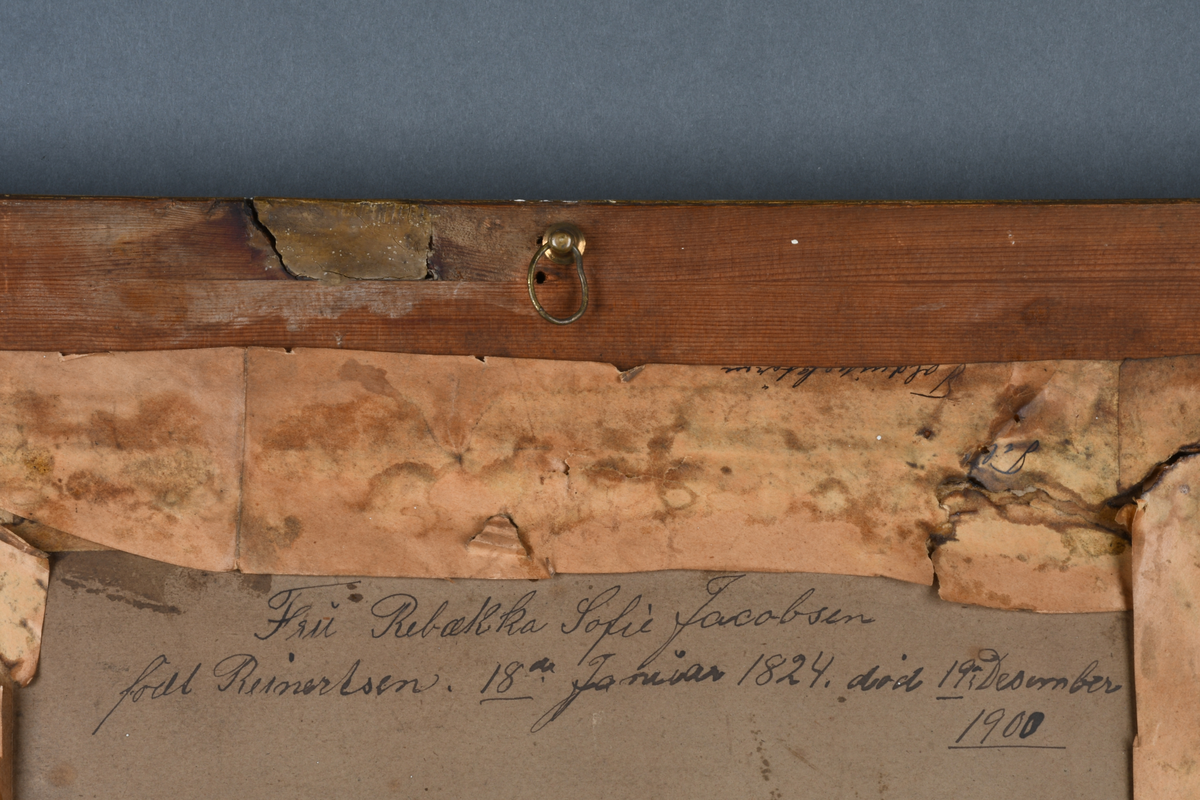 Toldinspektøren
Frü Rebækka Sofie Jacobsen
født Reinertsen. 18de Januar 1824. død 19de Desember
1900